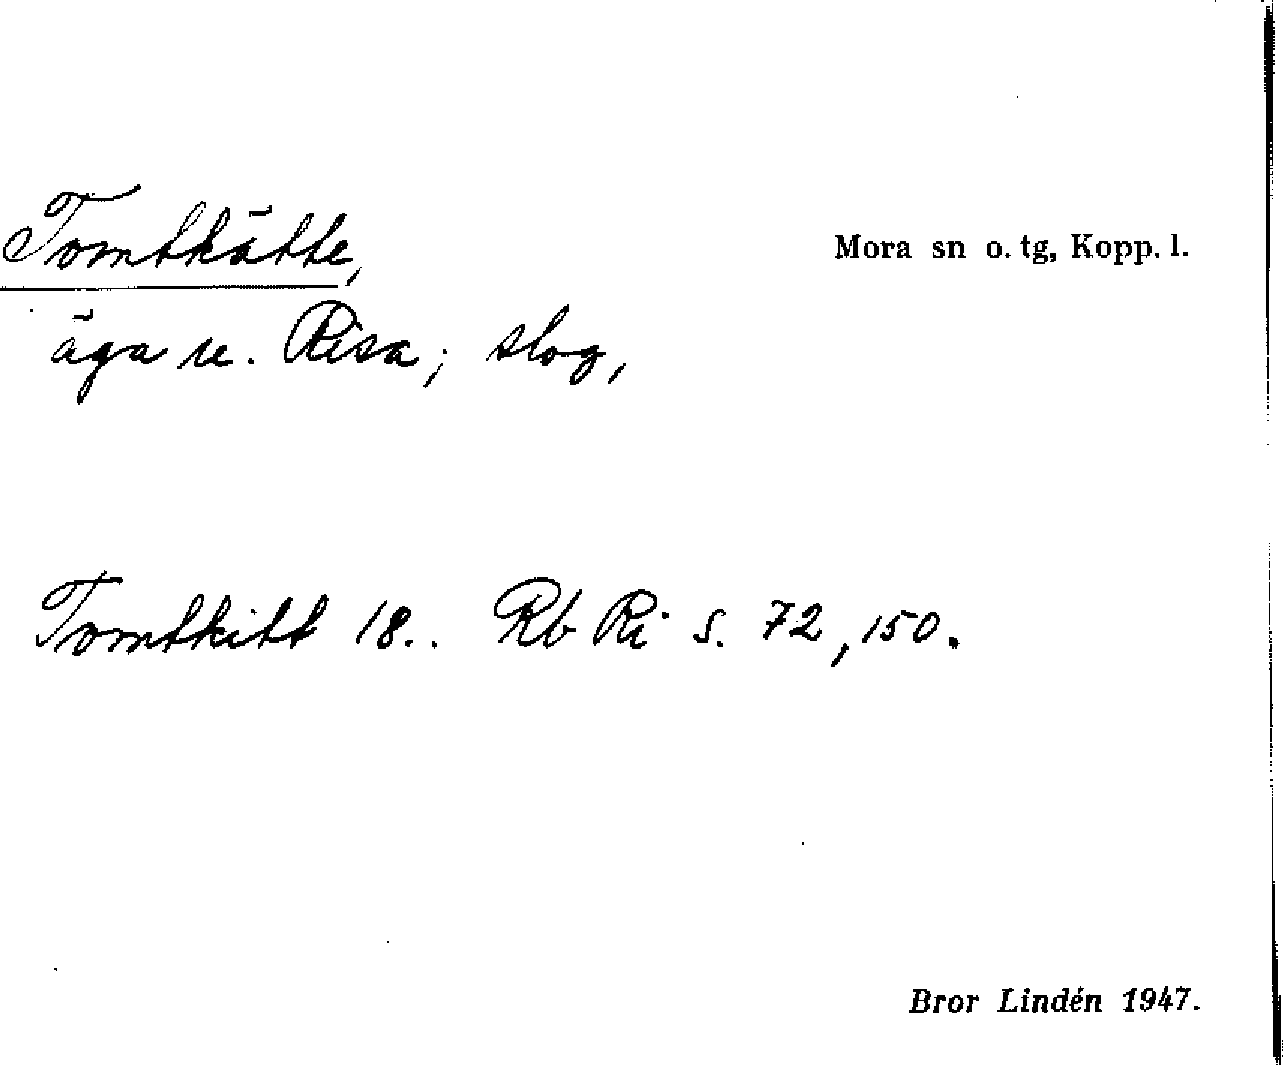 Tomtkätte,
Mora sn o. tg, Kopp. l.
äga u. Risa; slog,
Tomtkitt 18.. Rb Ri s. 72, 150.
Bror Lindén 1947.